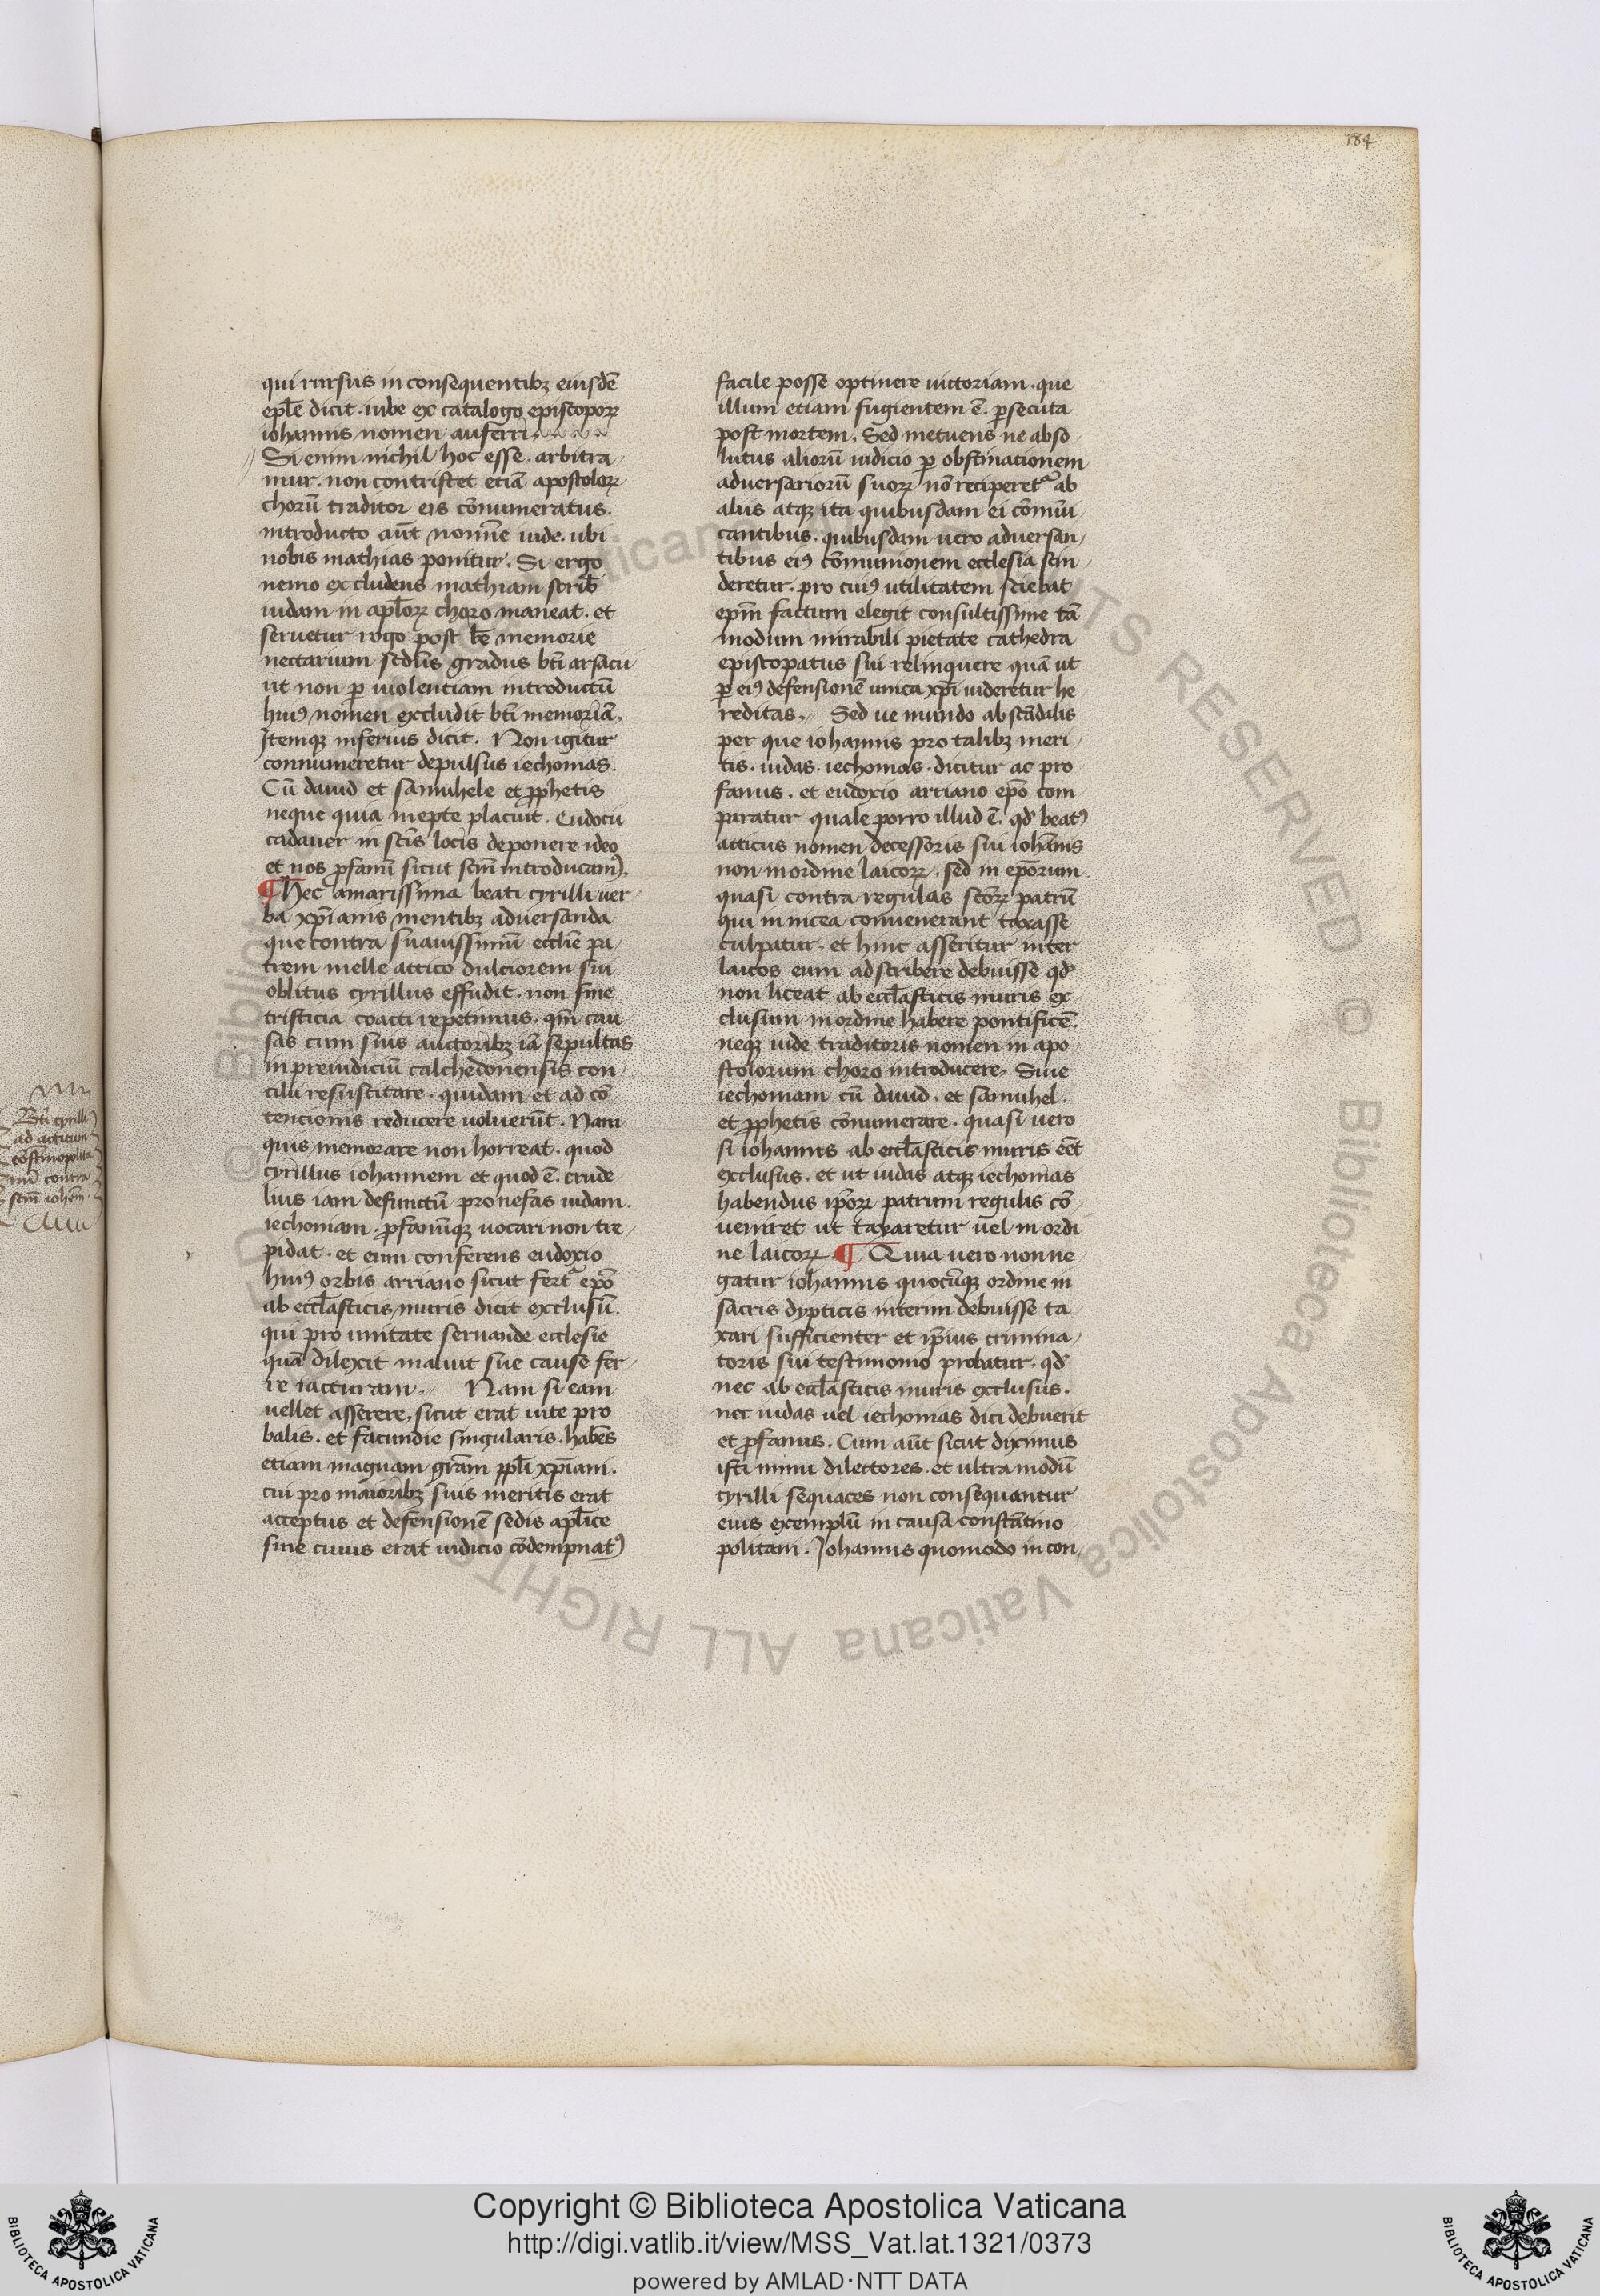 184
qui rursus in consequentibꝫ eiusdē
epl̄e dicit . iube ex catalogo episcoporꝝ
iohannis nomen auferri .
Si enim nichil hoc esse . arbitra
mur . non contristet etiā apostolorꝝ
chorū traditor eis cōnumeratus .
introducto aūt nomīe iude . ubi
nobis mathias ponitur . Si ergo
nemo excludens mathiam scrib̄
iudam in apl̄orꝝ choro maneat . et
seruetur rogo post bē memorie
nectarium sedl̄is gradus bt̄i arsacii
ut non ꝑ uiolentiam introductū
huiꝰ nomen excludit bt̄i memoriā .
Itemqꝫ inferius dicit . Non igitur
connumeretur depulsus iechonias .
Cū dauid et samuhele et ꝓphetis
neque quia inepte placuit . Eudocii
cadauer in scīs locis deponere ideo
et nos ꝓfanū sicut scm̄ introducamꝰ .
¶ Hec amarissima beati cyrilli uer
ba xp̄ianis mentibꝫ aduersanda
que contra suauissimū eccl̄ie pa
trem melle attico dulciorem sui
oblitus cyrillus effudit . non sine
tristicia coacti repetimus . qm̄ cau
sas cum suis auctoribꝫ iā sepultas
in preiudiciū calchedonensis con
cilii resuscitare . quidam et ad cō
tencionis reducere uoluerūt . Nam
quis memorare non horreat . quod
cyrillus iohannem et quod ē . crude
lius iam defunctū pro nefas iudam .
iechoniam . ꝓfanūqꝫ uocari non tre
pidat . et eum conferens eudoxio
huiꝰ orbis arriano sicut fertᵃ ep̄o
ab eccl̄asticis muris dicit exclusū .
qui pro unitate seruande ecclesie
quā dilexit maluit sue cause fer
re iacturam . Nam si eam
uellet asserere , sicut erat uite pro
balis . et facundie singularis . habēs
etiam magnam grām ppl̄i xp̄iani .
cui pro maioribꝫ suis meritis erat
acceptus et defensionē sedis apl̄ice
sine cuius erat iudicio cōdempnatꝰ
facile posse optinere uictoriam . que
illum etiam fugientem ē . ꝑsecuta
post mortem . Sed metuens ne abso
lutus aliorū iudicio ꝑ obstinationem
aduersariorū suorꝝ nō reciperetᵃ ab
aliis atqꝫ ita quibusdam ei cōmūi
cantibus . quibusdam uero aduersan
tibus eiꝰ cōmunionem ecclesia scin
deretur . pro cuiꝰ utilitatem sciebat
ep̄m factum elegit consultissime tā
modum mirabili pietate cathedra
episcopatus sui relinquere quā ut
ꝑ eiꝰ defensionē unica xp̄i uideretur he
reditas . Sed ue mundo ab scādalis
per que iohannis pro talibꝫ meri
tis . iudas . iechonias . dicitur ac pro
fanus . et eudoxio arriano ep̄o com
paratur quale porro illud ē . qd̄ beatꝰ
atticus nomen decessoris sui iohānis
non in ordine laicorꝝ . sed in ep̄orum
quasi contra regulas scōrꝝ patrū
qui in nicea conuenerant taxasse
culpatur . et hinc asseritur inter
laicos eum adscribere debuisse qd̄
non liceat ab eccl̄asticis muris ex
clusum in ordine habere pontificē .
neqꝫ iude traditoris nomen in apo
stolorum choro introducere . Siue
iechoniam cū dauid . et samuhel .
et ꝓphetis cōnumerare . quasi uero
si iohannis ab eccl̄asticis muris eēt
exclusus . et ut iudas atqꝫ iechonias
habendus ip̄orꝝ patrum regulis cō
ueniret ut taxaretur uel in ordi
ne laicorꝝ ¶ Quia uero non ne
gatur iohannis quocūqꝫ ordine in
sacris dypticis interim debuisse ta
xari sufficienter et ip̄ius crimina
toris sui testimonio probatur . qd̄
nec ab eccl̄asticis muris exclusus .
nec iudas uel iechonias dici debuerit
et ꝓfanus . Cum aūt sicut diximus
isti nimii dilectores . et ultra modū
cyrilli sequaces non consequantur
eius exemplū in causa constātino
politani . Iohannis quomodo in con
Bt̄i cyrilli
ad atticum
cōstn̄nopolita
nū contra
scm̄ iohēm .
Copyright © Biblioteca Apostolica Vaticana
http://digi.vatlib.it/view/MSS_Vat.lat.1321/0373
powered by AMLAD·NTT DATA
BIBLIOTECA APOSTOLICA VATICANA
BIBLIOTECA APOSTOLICA VATICANA